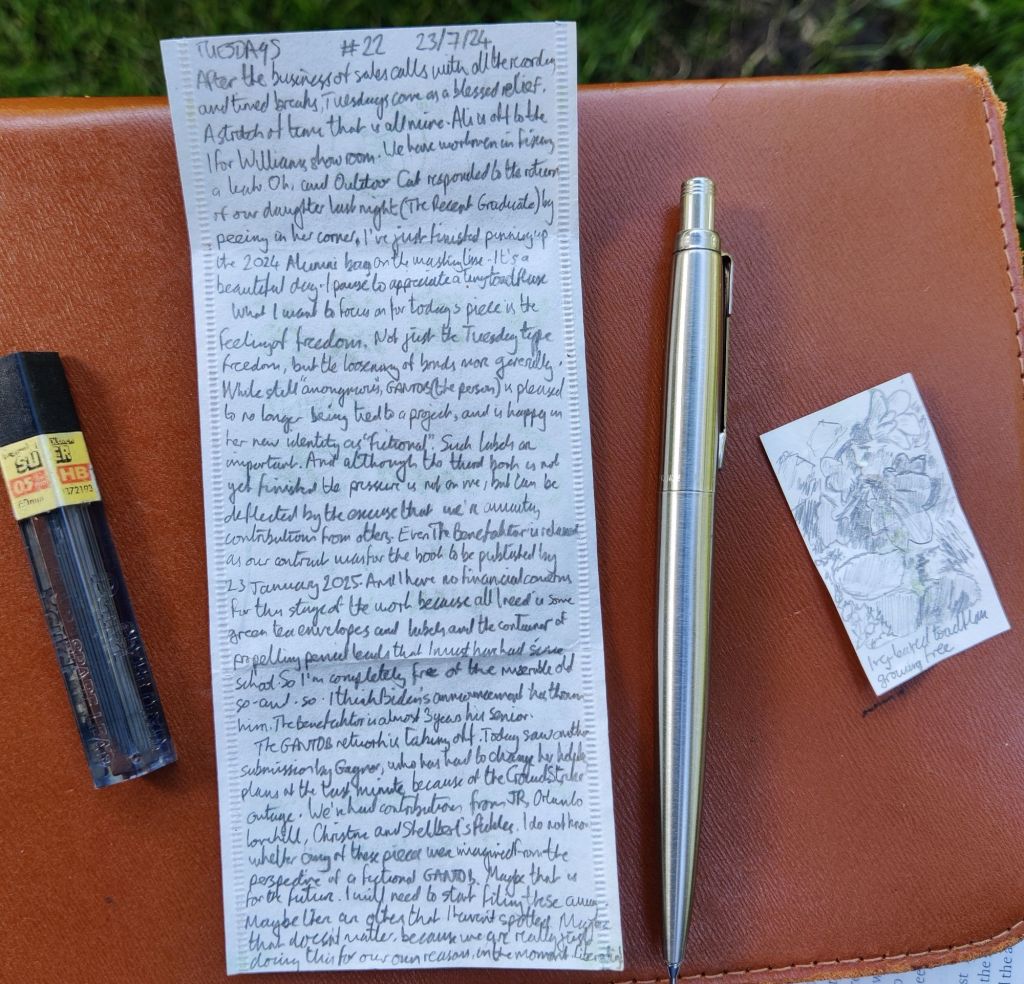 TUESDAYS #22 23/7/24
After the business of sales calls with all the recording
and timed breaks, Tuesdays come as a blessed relief.
A stretch of time that is all mine. Ali is off to the
1 for Williams showroom. We have workmen in fixing
a leak. Oh, and Outdoor Cat responded to the return
of our daughter last night (The Recent Graduate) by
peeing in her corner. I've just finished pinning up
the 2024 Alumni bag on the washing line. It's a
beautiful day. I pause to appreciate a tiny toadflax
What I want to focus on for today's piece is the
feeling of freedom. Not just the Tuesday type
freedom, but the loosening of bonds more generally.
While still "anonymous", GANTOB (the person) is pleased
to no longer being tied to a project, and is happy in
her new identity as "fictional". Such labels are
important. And although the third book is not
yet finished the pressure is not on me, but can be
deflected by the excuse that we're awaiting
contributions from others. Even The Benefaktor is relaxed
as our contract was for the book to be published by
23 January 2025. And I have no financial concerns
for this stage of the work because all I need is some
green tea envelopes and labels and the container of
propelling pencil leads that I must have had since
school. So I'm completely free of the miserable old
so-and-so. I think Biden's announcement has thrown
him. The benefaktor is almost 3 years his senior.
The GANTOB network is taking off. Today saw another
submission by Gagnor, who has had to change her
plans at the last minute because of the CrowdStrike
outage. We've had contributions from JR, Orlando
Lovehell, Christine and I do not know
whether any of these pieces were imagined from the
perspective of a fictional GANTOB. Maybe that is
for the future. I will need to start filing these away.
Maybe there are others that I haven't spotted. Maybe
that doesn't matter, because we are really just
doing this for our own reasons, in the moment, literally
SUPER
0.5
HB
Ivy-leaved toadflax
growing free